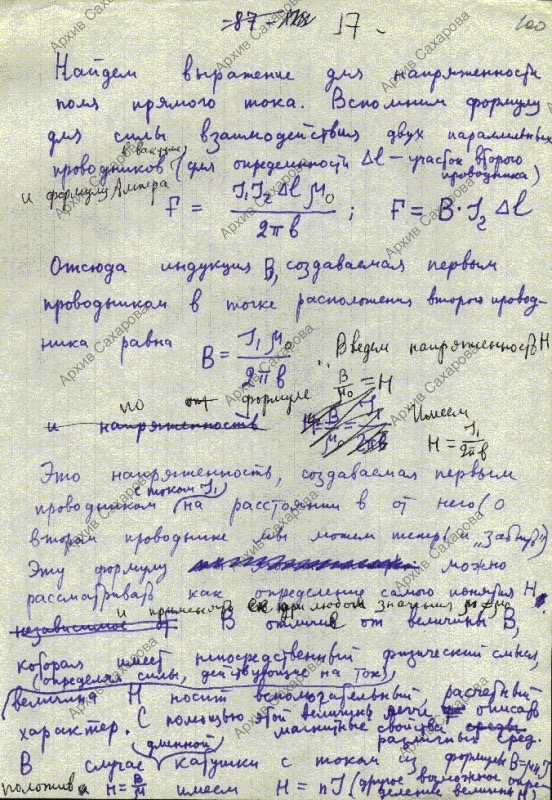 17
100
Найдем выражение для напряженности
поля прямого тока. Вспомним формулу
для силы взаимодействия двух параллельных
в вакууме
проводников (для определенности Δl – участок второго
проводника)
и формулу Ампера
F = J₁J₂ Δl μ₀ / 2πb ; F = B·J₂ Δl
Отсюда индукция B, создаваемая первым
проводником в точке расположения второго провод-
ника равна B = J₁μ₀ / 2πb . Введем напряженность H
по формуле B/μ₀ = H
и напряженность
Имеем
H = J₁/2πb
Это напряженность, создаваемая первым
с током J₁
проводником на расстоянии b от него (о
втором проводнике мы можем теперь и „забыть")
Эту формулу можно
рассматривать как определение самого понятия H
и применять при любом значении
независимое от В отличие от величины B,
которая имеет непосредственный физический смысл,
(определяя силы, действующие на ток),
величина H носит вспомогательный, расчетный
характер. С помощью этой величины легче описать
магнитные свойства
различных сред.
длинной
В случае катушки с током из формулы B=μnJ
положив H = B/μ имеем H = nJ (другое возможное опре-
деление величины H)
Архив Сахарова